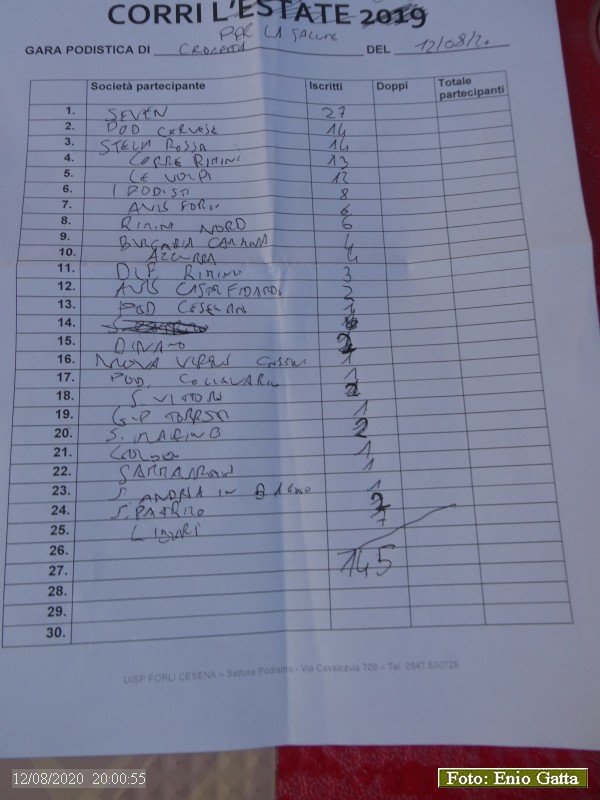 CORRI L'ESTATE 2019
PER LA SALUTE
GARA PODISTICA DI CROCETTA DEL 12/08/20
Società partecipante Iscritti Doppi Totale partecipanti
1. SEVEN 27
2. POD CERVESE 14
3. STELLA ROSSA 14
4. CORRE RIMINI 13
5. LE VOLPI 12
6. I PODISTI 8
7. AVIS FORLI 6
8. RIMINI NORD 6
9. BULGARIA 4
10. AZZURRA 4
11. DLF RIMINO 3
12. AVIS CASTELFIDARDO
13. POD CESENAN 1
14.
15. DINAMO 2
16. NUOVA VIRTUS CESENA 1
17. POD. 1
18. S. VITTORE 2
19. G.P 1
20. S. MARINO 2
21. 1
22. 1
23. S. ANDREA IN BAGNO 1
24. S. PATRIZIO 2
25. LIBERI 7
26.
27. 145
28.
29.
30.
UISP FORLI CESENA – Settore Podismo - Via Cavalcavia 709 – Tel. 0547.630728
12/08/2020 20:00:55
Foto: Enio Gatta